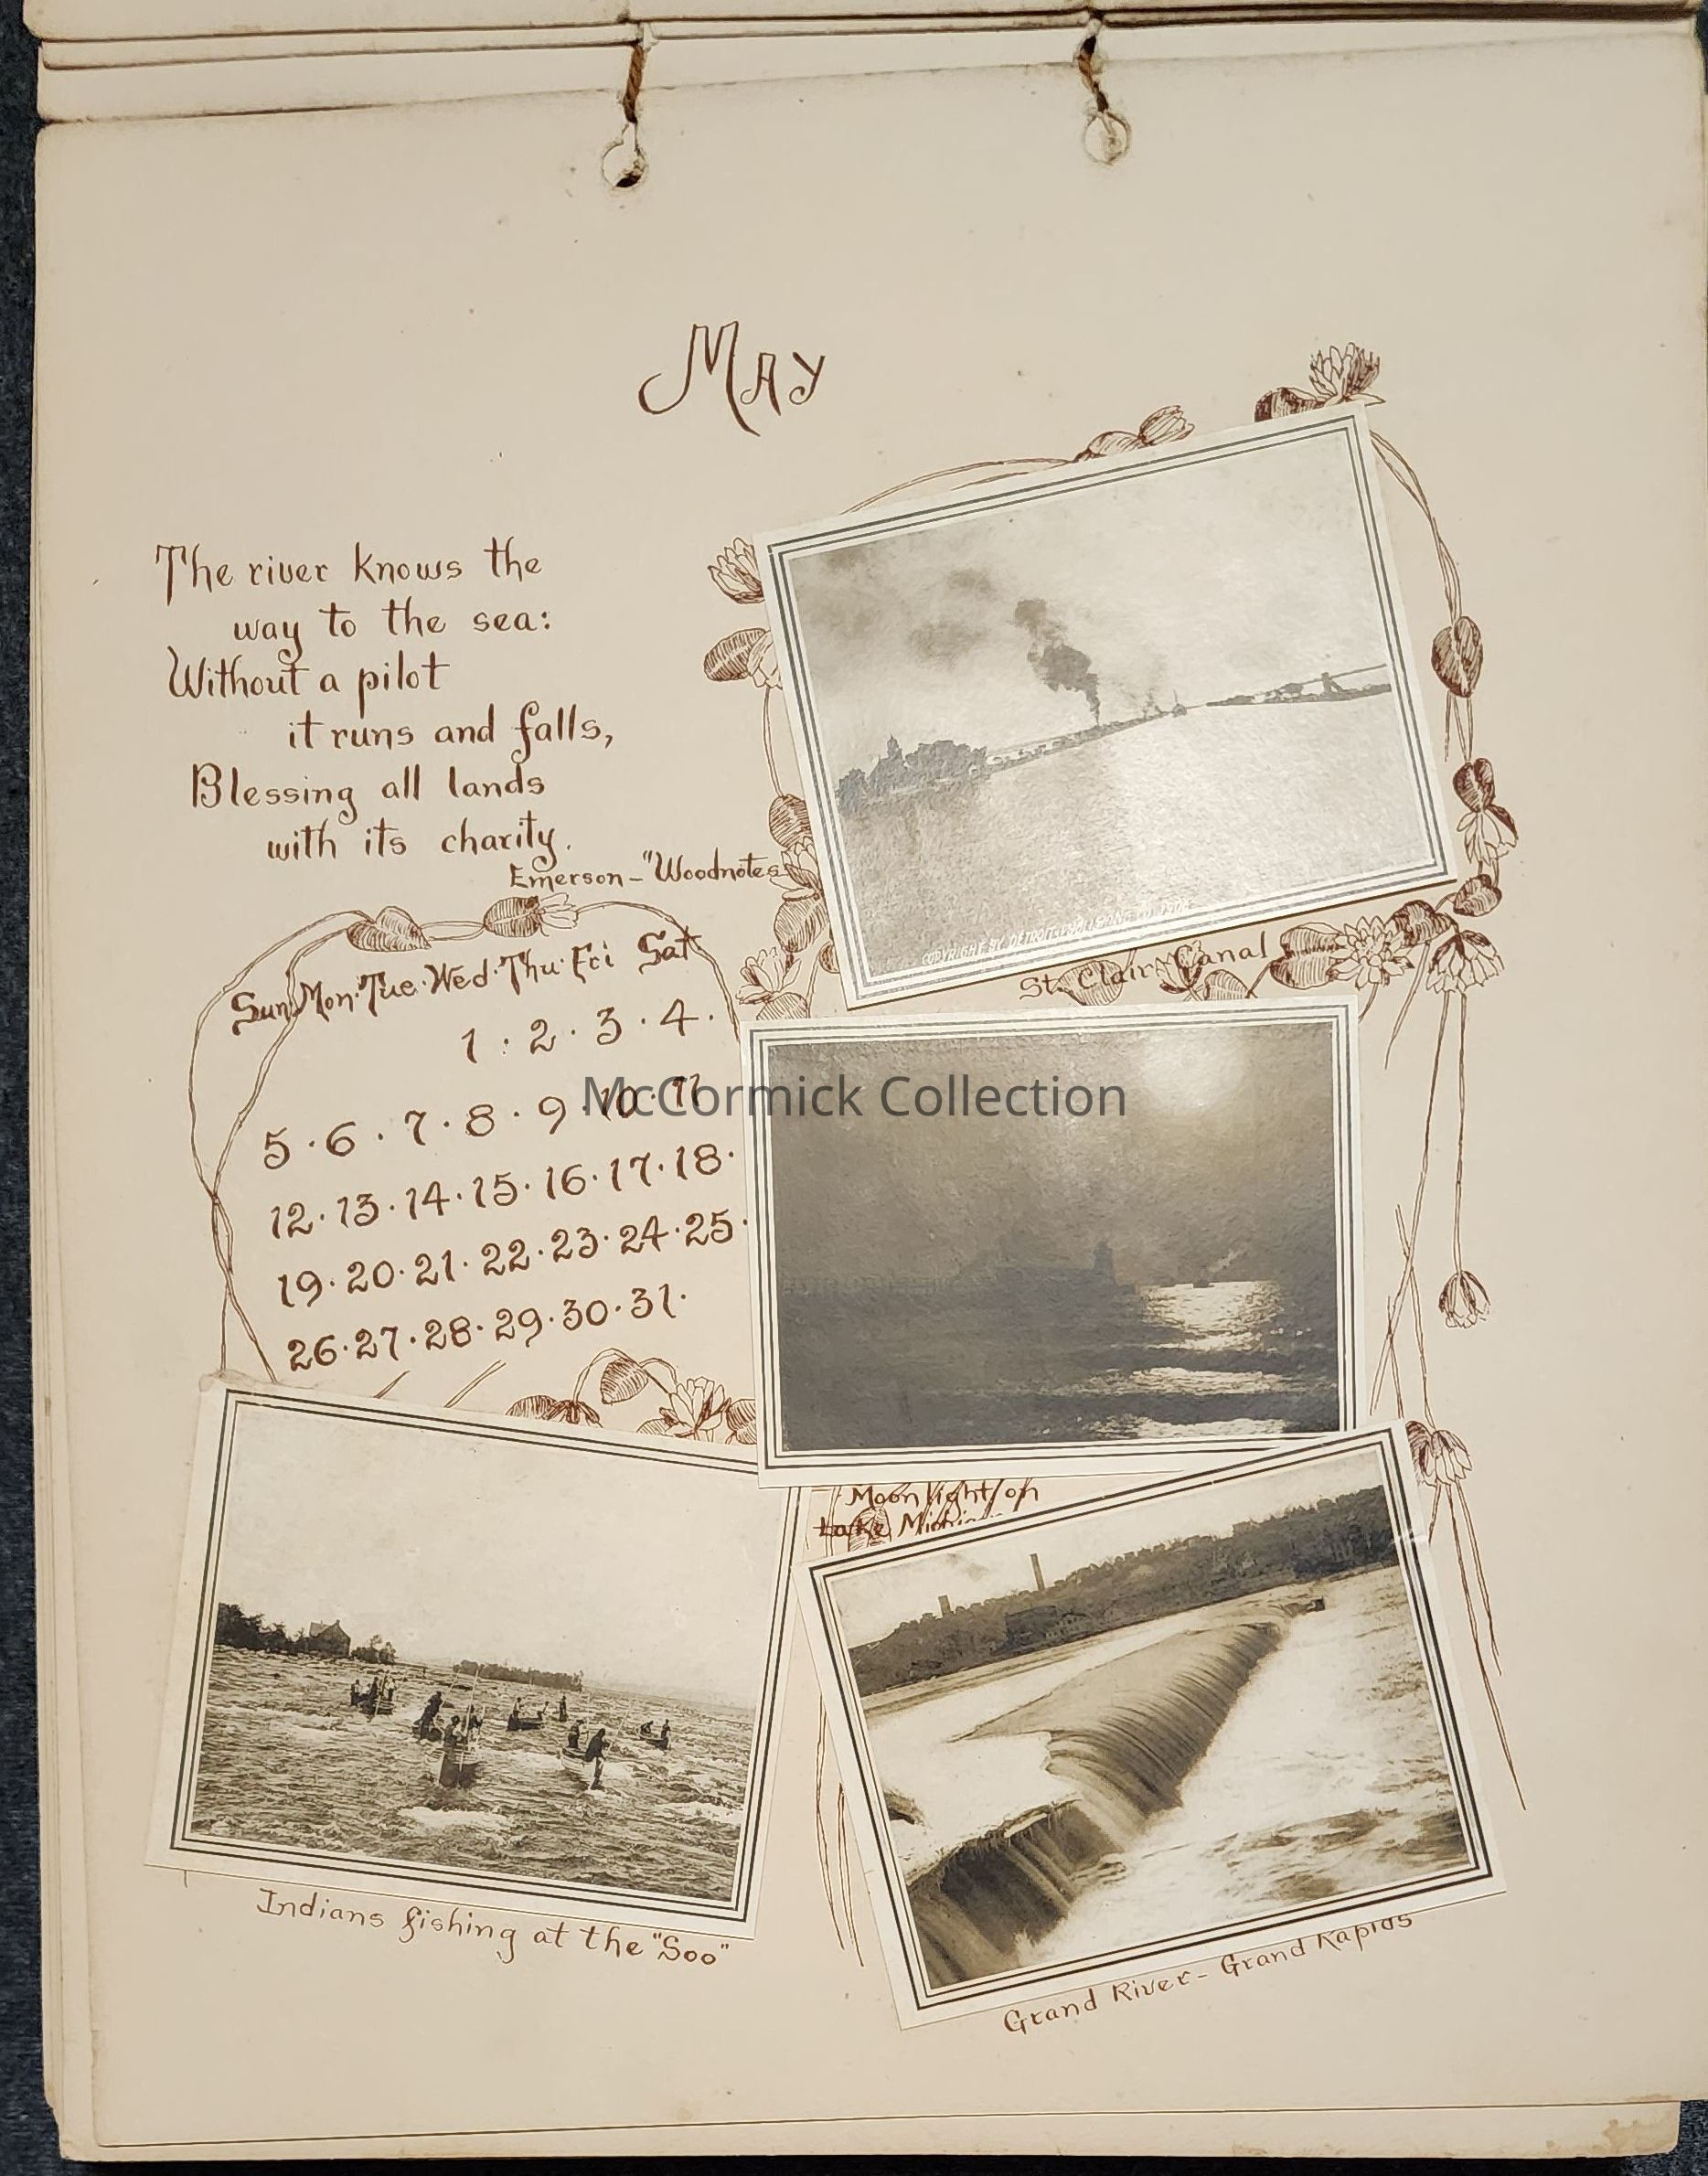 May
The river knows the
way to the sea:
Without a pilot
it runs and falls,
Blessing all lands
with its charity.
Emerson – "Woodnotes
Sun· Mon· Tue· Wed· Thu· Fri Sat
1 : 2 · 3 · 4 ·
5 · 6 · 7 · 8 · 9 · 10 · 11
12 · 13 · 14 · 15 · 16 · 17 · 18 ·
19 · 20 · 21 · 22 · 23 · 24 · 25 ·
26 · 27 · 28 · 29 · 30 · 31 ·
COPYRIGHT BY DETROIT
St. Clair Canal
McCormick Collection
Moonlight on
Lake Michigan
Indians fishing at the "Soo"
Grand River – Grand Rapids